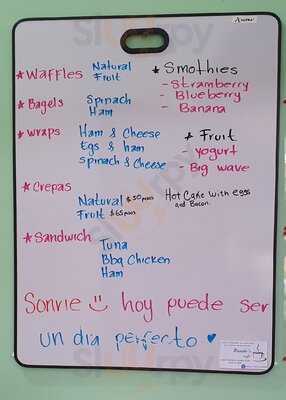 ★ Waffles Natural
Fruit
★ Bagels Spinach
Ham
★ wraps Ham & Cheese
Egs & ham
Spinach & Cheese
★ Crepas
Natural $50 pesos
Fruit $65 pesos
★ Sandwich
Tuna
Bbq Chicken
Ham
★ Smothies
- Stramberry
- Blueberry
- Banana
★ Fruit
- yogurt
- Big wave
Hot Cake with eggs
and Bacon.
Sonrie hoy puede ser
un dia perfecto